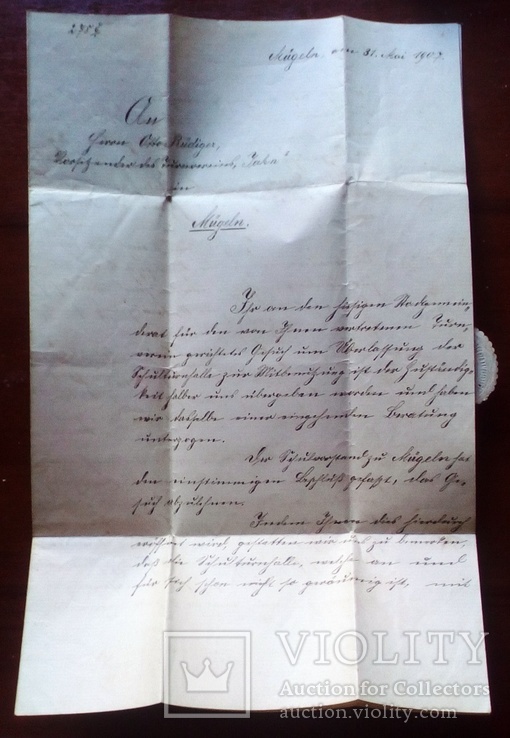 Mügeln, am 31. Mai 1907.
An
Herrn Otto Rüdiger,
Vorsitzender des Turnvereins „Jahn“
in
Mügeln.
Ihr an den hiesigen Stadtgemein-
derat für den von Ihnen vertretenen Turn-
verein gerichtetes Gesuch um Überlassung der
Schulturnhalle zur Mitbenutzung ist der Zuständig-
keit halber uns übergeben worden und haben
wir dasselbe einer eingehenden Beratung
unterzogen.
Der Schulvorstand zu Mügeln hat
den einstimmigen Beschluß gefaßt, das Ge-
such abzulehnen.
Indem Ihnen dies hierdurch
eröffnet wird, gestatten wir uns zu bemerken,
daß die Schulturnhalle, welche an und
für sich schon nicht so geräumig ist, mit
VIOLITY
Auction for Collectors
auction.violity.com